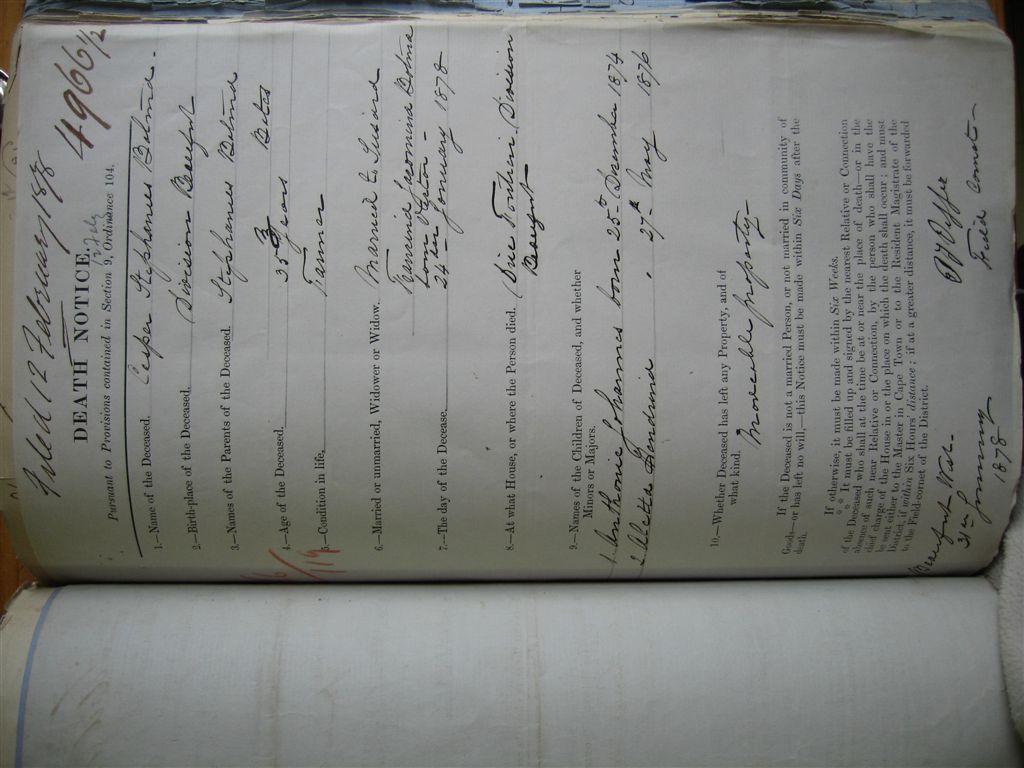 Filed 12 February 1878
4966½
DEATH NOTICE,
Pursuant to Provisions contained in Section 9, Ordinance 104.
1.—Name of the Deceased. Casper Stephanus Botma.
2.—Birth-place of the Deceased. Division Beaufort
3.—Names of the Parents of the Deceased. Stephanus Botma
Botes
4.—Age of the Deceased. 35 Years
5.—Condition in life. Farmer
6.—Married or unmarried, Widower or Widow. Married to Susara
Botma
born
7.—The day of the Decease. 24th January 1878
8.—At what House, or where the Person died. Division
Beaufort
9.—Names of the Children of Deceased, and whether
Minors or Majors.
1 Anthonie Johannes born 25th December 1874
2 Aletta 27th May 1876
10.—Whether Deceased has left any Property, and of
what kind. Moveable property
If the Deceased is not a married Person, or not married in community of
Goods—or has left no will,—this Notice must be made within Six Days after the
death.
If otherwise, it must be made within Six Weeks.
*** It must be filled up and signed by the nearest Relative or Connection
of the Deceased who shall at the time be at or near the place of death—or in the
absence of such near Relative or Connection, by the person who shall have the
chief charge of the House in or the place on which the death shall occur; and must
be sent either to the Master in Cape Town or to the Resident Magistrate of the
District, if within Six Hours' distance; if at a greater distance, it must be forwarded
to the Field-cornet of the District.
Beaufort West
31st January
1878
Field Cornet